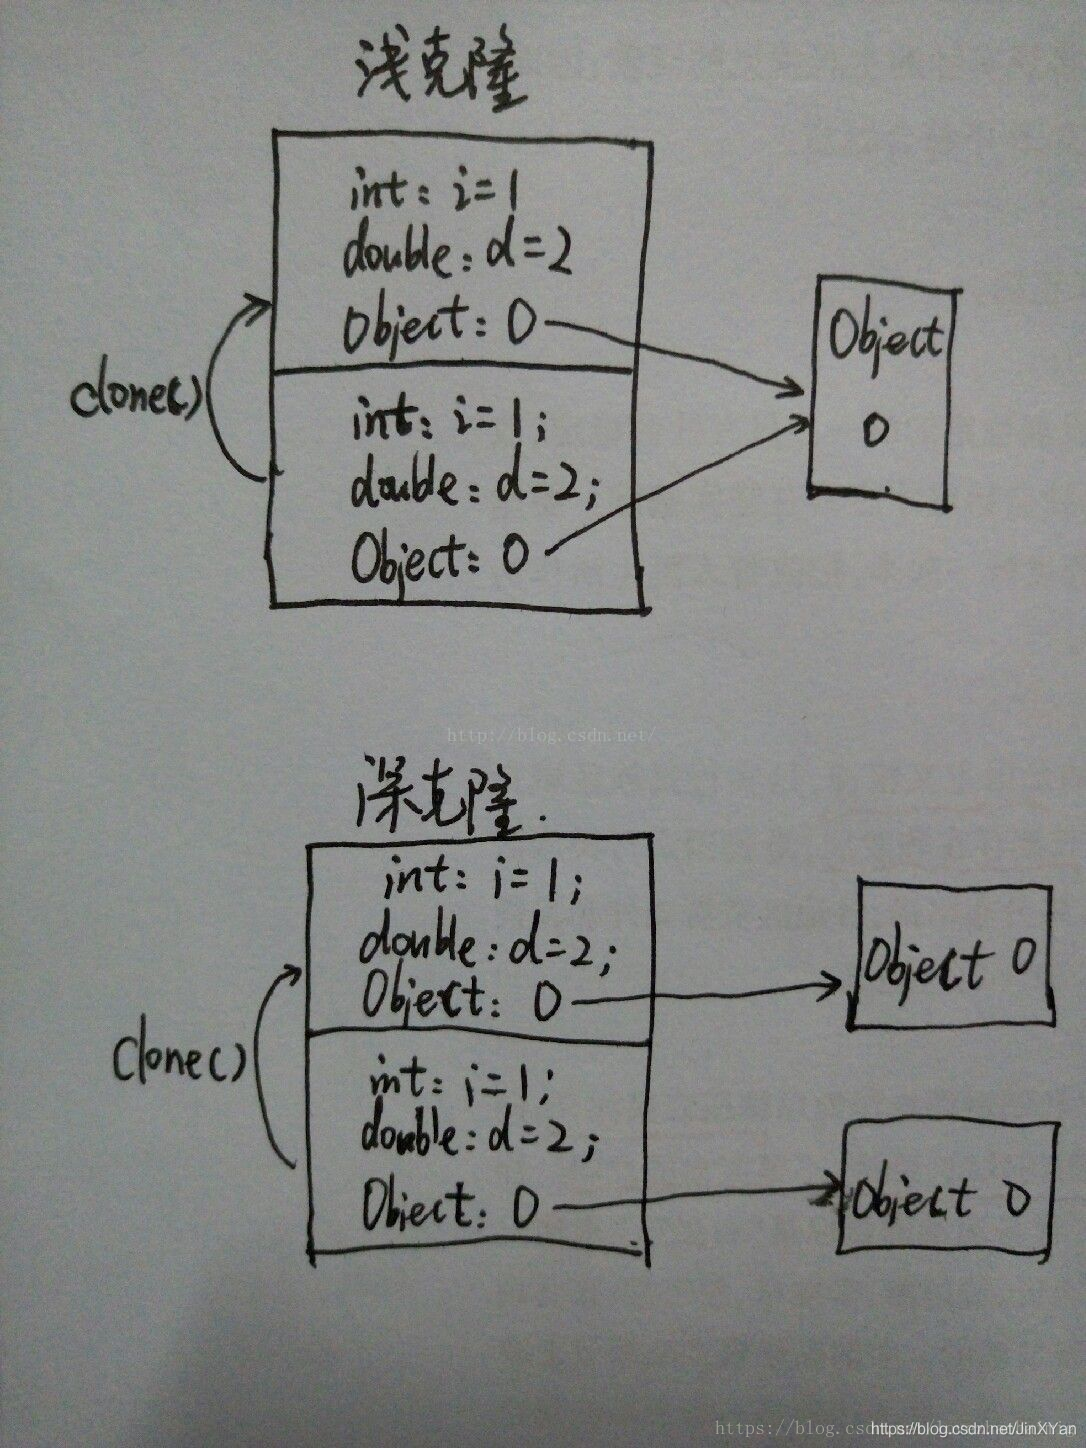 浅克隆
int: i=1
double: d=2
Object: O
clone()
int: i=1;
double: d=2;
Object: O
Object
O
http://blog.csdn.net/
深克隆.
int: i=1;
double: d=2;
Object: O
Object O
clone()
int: i=1;
double: d=2;
Object: O
Object O
https://blog.csdn.net/JinXYan